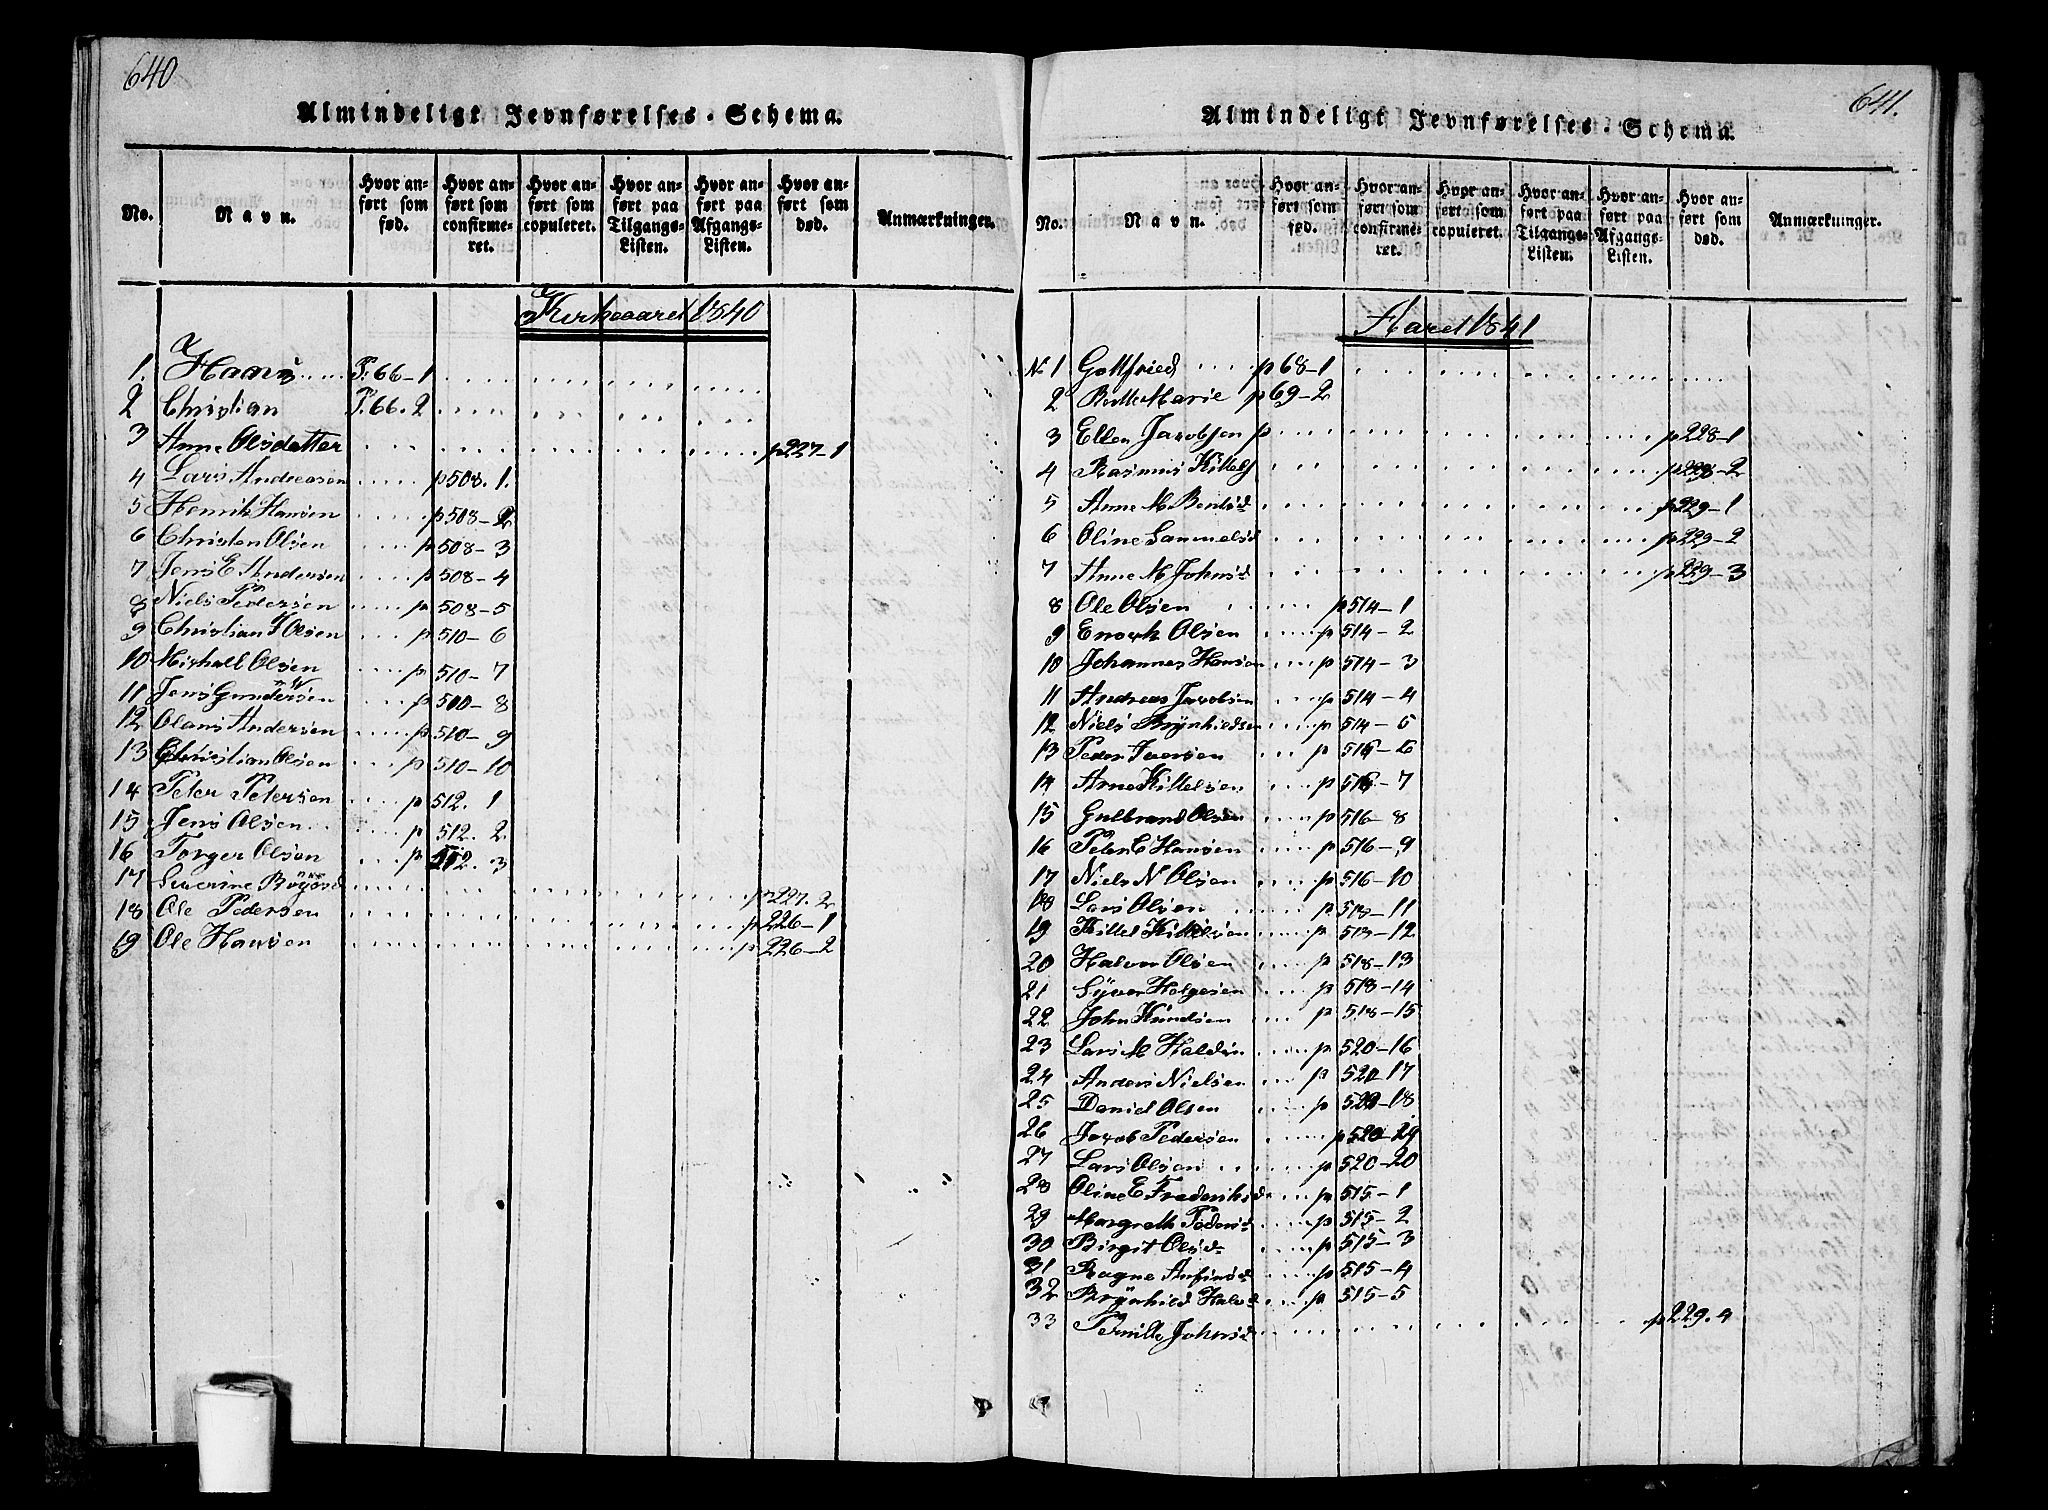 640
Almindeligt Jevnførelses-Schema.
No. | Navn. | Hvor anført som fød. | Hvor anført som confirmeret. | Hvor anført som copuleret. | Hvor anført paa Tilgangs-Listen. | Hvor anført paa Afgangs-Listen. | Hvor anført som død. | Anmærkninger.
Kirkeaaret 1840
1. Hans P. 66-1
2 Christian P. 66. 2
3 Anne Olsdatter p 227-1
4 Lars Andreasen p 508. 1.
5 Henrik Hansen p 508-2
6 Christen Olsen p 508-3
7 Jens E Andersen p 508-4
8 Niels Pedersen p 508-5
9 Christian Olsen p 510-6
10 Michall Olsen p 510-7
11 Jens Gundersen p 510-8
12 Olans Andersen p 510-9
13 Christian Olsen p 510-10
14 Peter Petersen p 512. 1
15 Jens Olsen p 512. 2
16 Torger Olsen p 512. 3
17 Severine p 227. 2
18 Ole Pedersen p 226-1
19 Ole Hansen p 226-2
641.
Almindeligt Jevnførelses-Schema.
No. | Navn. | Hvor anført som fød. | Hvor anført som confirmeret. | Hvor anført som copuleret. | Hvor anført paa Tilgangs-Listen. | Hvor anført paa Afgangs-Listen. | Hvor anført som død. | Anmærkninger.
Aaret 1841
N. 1 Gottfried p 68-1
2 Berthe Marie p 69-2
3 Ellen Jacobsen p p 228-1
4 Rasmus Kittels p 228-2
5 Anne M Bentsd p 229-1
6 Oline Sammelsd p 229-2
7 Anne M Johnsd p 229-3
8 Ole Olsen p 514-1
9 Enock Olsen p 514-2
10 Johannes Hansen p 514-3
11 Andreas Jacobsen p 514-4
12 Niels Brynhildsen p 514-5
13 Peder Iversen p 516-6
14 Arne Kittelsen p 516-7
15 Gulbrand Olsen p 516-8
16 Peter C Hansen p 516-9
17 Niels N Olsen p 516-10
18 Lars Olsen p 518-11
19 Kittel Kittelsen p 518-12
20 Halvor Olsen p 518-13
21 Syver Helgesen p 518-14
22 John Knudsen p 518-15
23 Lars M p 520-16
24 Anders Nielsen p 520-17
25 Daniel Olsen p 520-18
26 Jacob Pedersen p 520-19
27 Lars Olsen p 520-20
28 Oline E Frederiksd p 515-1
29 Margreth Pedersd p 515-2
30 Birgit Olsd p 515-3
31 Ragne Anfinsd p 515-4
32 Brynhild Halvd p 515-5
33 Pernille Johnsd p 229. 4